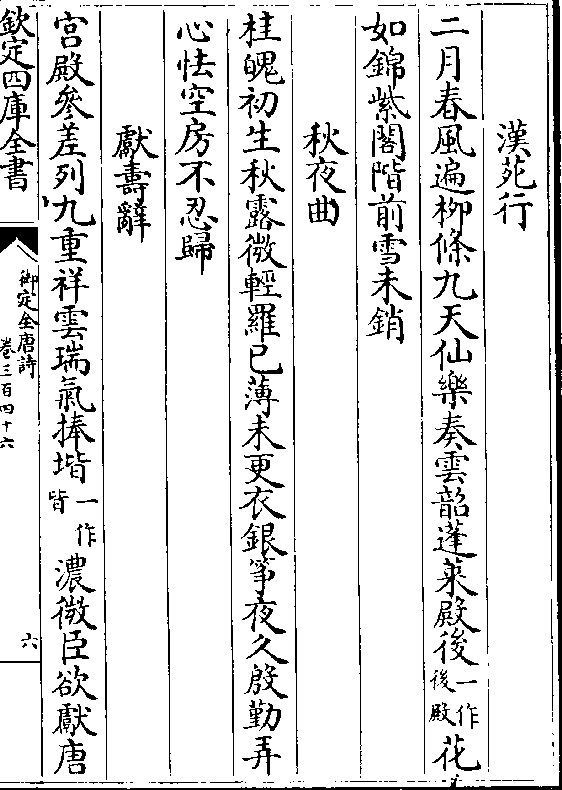 漢苑行
二月春風遍柳條九天仙樂奏雲韶蓬萊殿後一作後殿花
如錦紫閣階前雪未銷
秋夜曲
桂魄初生秋露微輕羅已薄未更衣銀箏夜久殷勤弄
心怯空房不忍歸
獻壽辭
宫殿參差列九重祥雲瑞氣捧堦一作皆濃微臣欲獻唐
欽定四庫全書
御定全唐詩
卷三百四十六
六